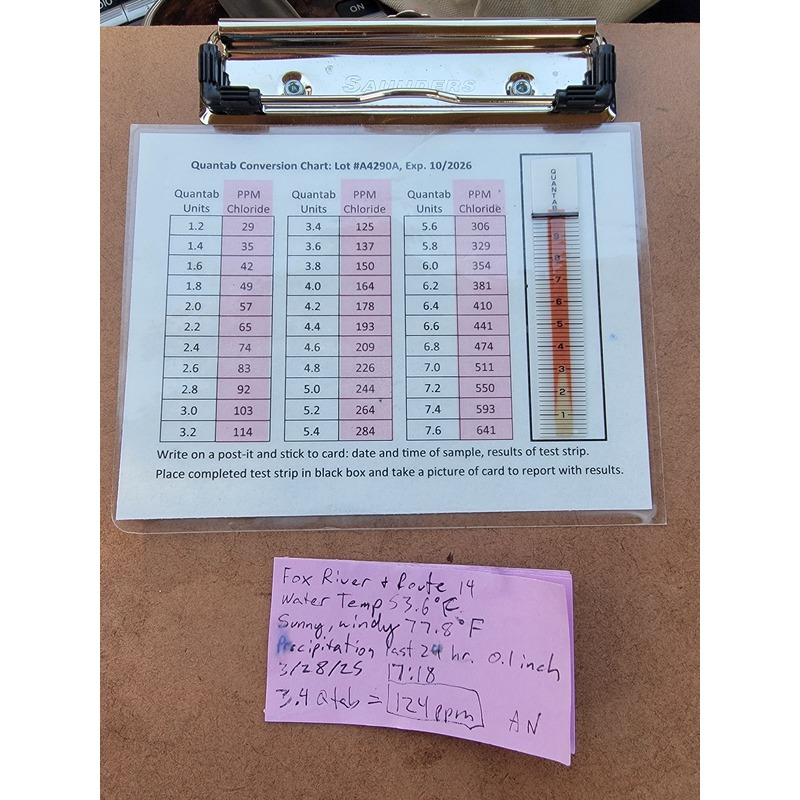 ON
SAUNDERS
Quantab Conversion Chart: Lot #A4290A, Exp. 10/2026
Quantab Units PPM Chloride Quantab Units PPM Chloride Quantab Units PPM Chloride
1.2 29 3.4 125 5.6 306
1.4 35 3.6 137 5.8 329
1.6 42 3.8 150 6.0 354
1.8 49 4.0 164 6.2 381
2.0 57 4.2 178 6.4 410
2.2 65 4.4 193 6.6 441
2.4 74 4.6 209 6.8 474
2.6 83 4.8 226 7.0 511
2.8 92 5.0 244 7.2 550
3.0 103 5.2 264 7.4 593
3.2 114 5.4 284 7.6 641
QUANTAB
9
8
7
6
5
4
3
2
1
Write on a post-it and stick to card: date and time of sample, results of test strip.
Place completed test strip in black box and take a picture of card to report with results.
Fox River + Route 14
Water Temp 53.6°F
Sunny, windy 77.8°F
Precipitation last 24 hr. 0.1 inch
3/28/25 17:18
3.4 Qtab = 124 ppm AN